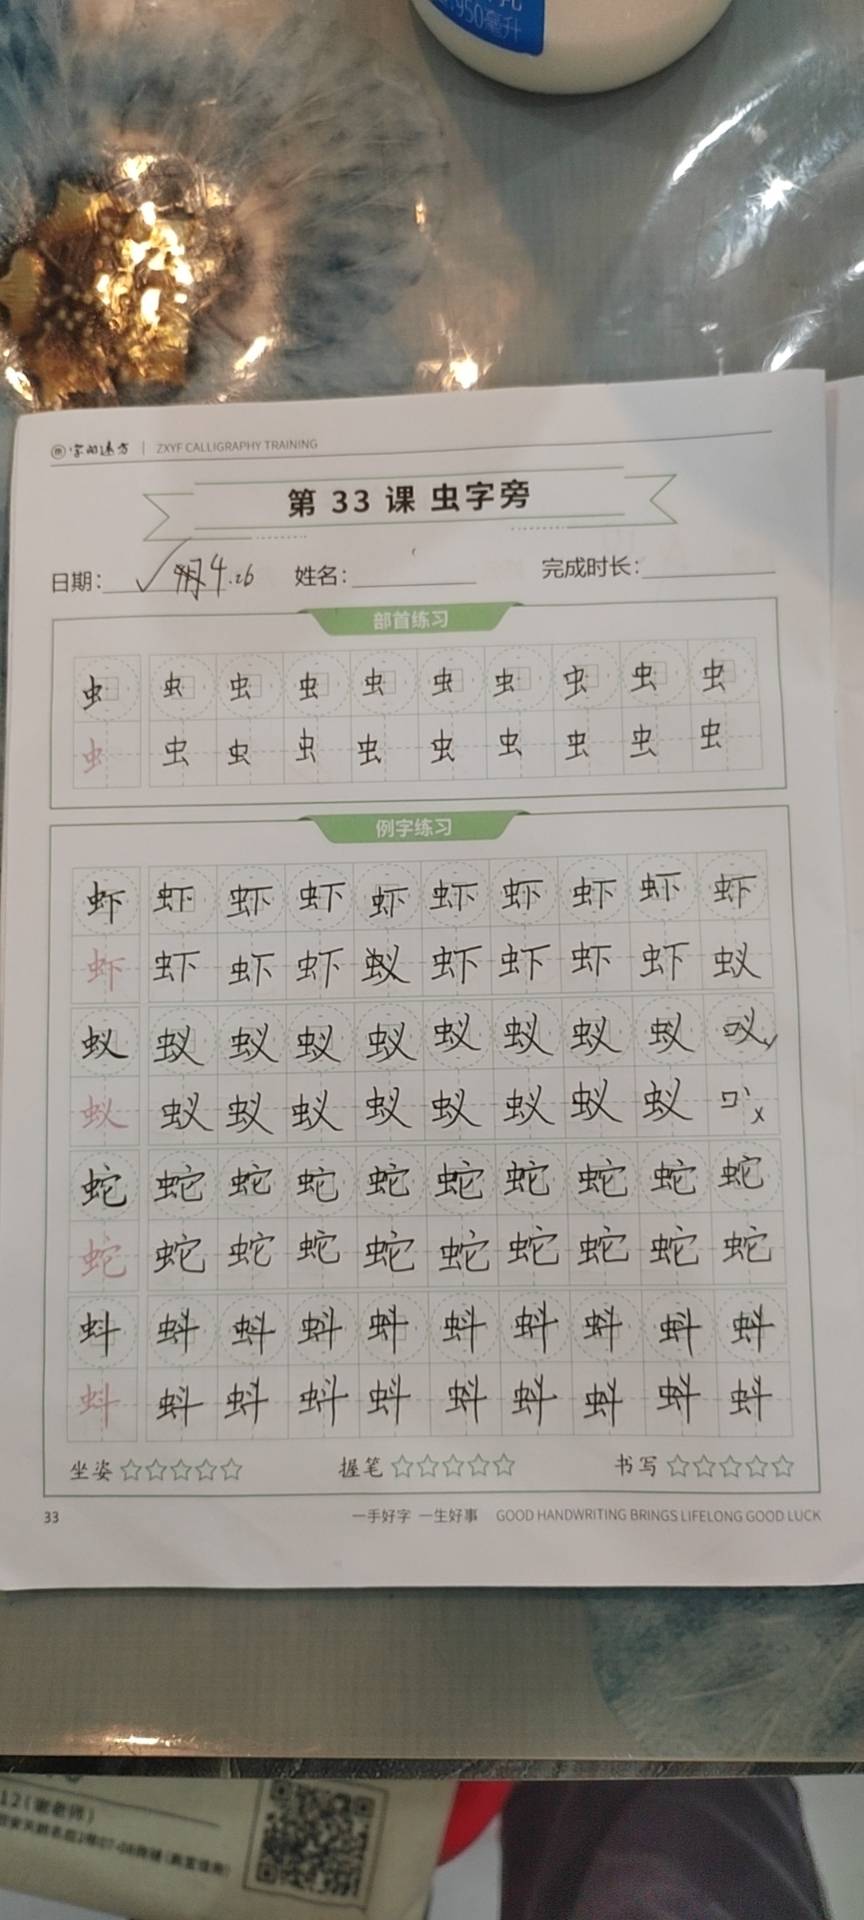 950毫升
字的远方 | ZXYF CALLIGRAPHY TRAINING
第 33 课 虫字旁
日期: 4.26 姓名: 完成时长:
部首练习
虫 虫 虫 虫 虫 虫 虫 虫 虫 虫
虫 虫 虫 虫 虫 虫 虫 虫 虫 虫
例字练习
虾 虾 虾 虾 虾 虾 虾 虾 虾 虾
虾 虾 虾 虾 蚁 虾 虾 虾 虾 蚁
蚁 蚁 蚁 蚁 蚁 蚁 蚁 蚁 蚁
蚁 蚁 蚁 蚁 蚁 蚁 蚁 蚁 蚁
蛇 蛇 蛇 蛇 蛇 蛇 蛇 蛇 蛇 蛇
蛇 蛇 蛇 蛇 蛇 蛇 蛇 蛇 蛇 蛇
蚪 蚪 蚪 蚪 蚪 蚪 蚪 蚪 蚪 蚪
蚪 蚪 蚪 蚪 蚪 蚪 蚪 蚪 蚪 蚪
坐姿 握笔 书写
33 一手好字 一生好事 GOOD HANDWRITING BRINGS LIFELONG GOOD LUCK
12(谢老师)